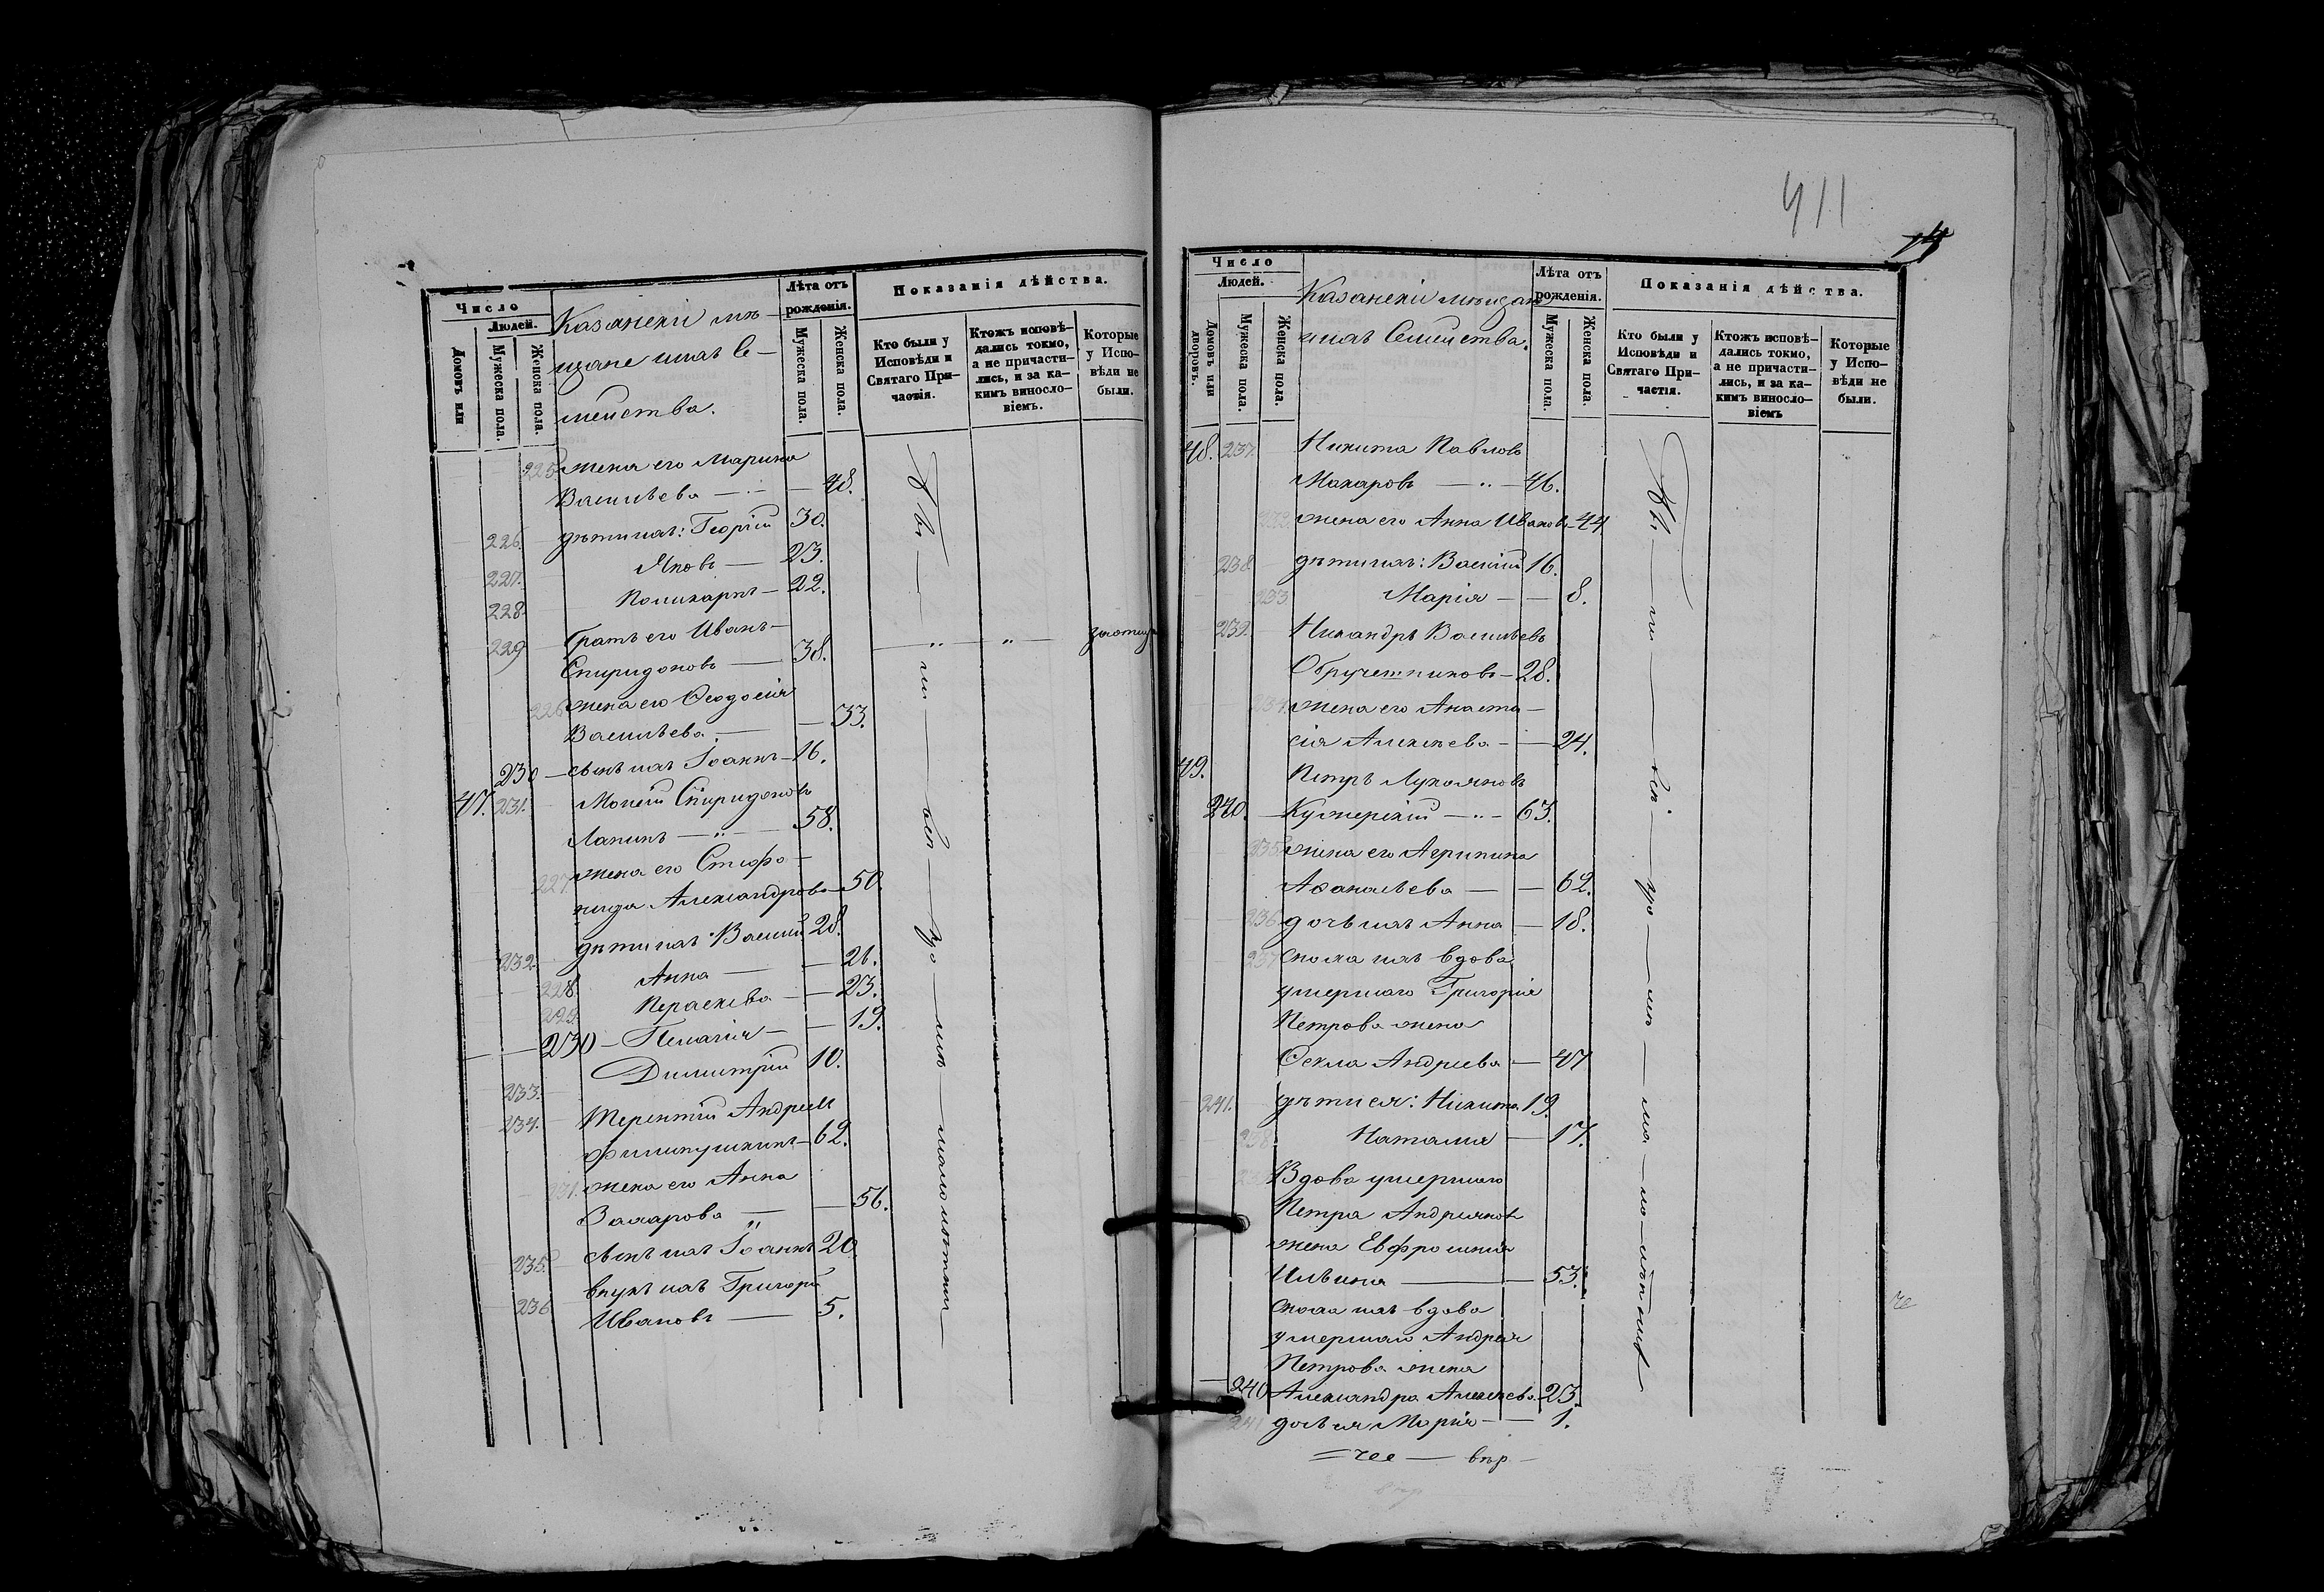 Число
Людей.
Домовъ или
Мужеска пола.
Женска пола.
Казанскіи мѣ-
щане ихъ Се-
мейства.
Лѣта отъ
рожденія.
Мужеска пола.
Женска пола.
Показанія дѣйства.
Кто были у
Исповѣди и
Святаго При-
частія.
Ктожъ исповѣ-
дались токмо,
а не причасти-
лись, и за ка-
кимъ виносло-
віемъ.
Которые
у Испо-
вѣди не
были.
225. жена его Марина
Васильева — 48.
226. дѣти ихъ: Георгій 30.
227. Яковъ — 23.
228. Поликарпъ — 22.
229 Братъ его Иванъ —
Спиридоновъ — 38.
226 жена его Ѳеодосія
Васильева — 33.
230 — сынъ ихъ Іоаннъ — 16.
47. 231. Мокей Спиридоновъ
Лапинъ — 58.
227 жена его Стефа-
нида Александрова — 50.
232. дѣти ихъ Василій 28.
228. Анна — 26.
229. Параскева — 23.
230 — Пелагія — 19.
233. Димитрій 10.
234. Терентій Андреев
Филипушкинъ — 62.
231. жена его Анна
Захарова — 56.
235. сынъ ихъ Іоаннъ 20
236 внукъ ихъ Григорій
Ивановъ — 5.
411
Число
Людей.
Домовъ или
дворовъ.
Мужеска пола.
Женска пола.
Казанскіи мѣщан
ихъ Семейства.
Лѣта отъ
рожденія.
Мужеска пола.
Женска пола.
Показанія дѣйства.
Кто были у
Исповѣди и
Святаго При-
частія.
Ктожъ исповѣ-
дались токмо,
а не причасти-
лись, и за ка-
кимъ виносло-
віемъ
Которые
у Испо-
вѣди не
были.
48. 237. Никита Павловъ
Макаровъ — 46.
232 жена его Анна Иванов. — 44
238 дѣти ихъ: Василій 16.
233 Марія — 8.
239. Никандръ Васильевъ
Обручетниковъ — 28.
234. жена его Анаста-
сія Алексѣева — 24.
49. Петръ Лукояновъ
240. Кузмерскій — 63.
235 жена его Агрипина
Аѳанасьева — 62.
236 дочь ихъ Анна — 18.
237 сноха ихъ вдова
умершаго Григорія
Петрова жена
Ѳекла Андреева — 47
241. дѣти ея: Никита 19.
238 Наталия — 17.
239 Вдова умершаго
Петра Андреянов
жена Евфросинія
Ильина — 53.
сноха ихъ вдова
умершаго Андрея
Петрова жена
240 Александра Алексѣева — 23.
241 дочь ея Марія — 1.